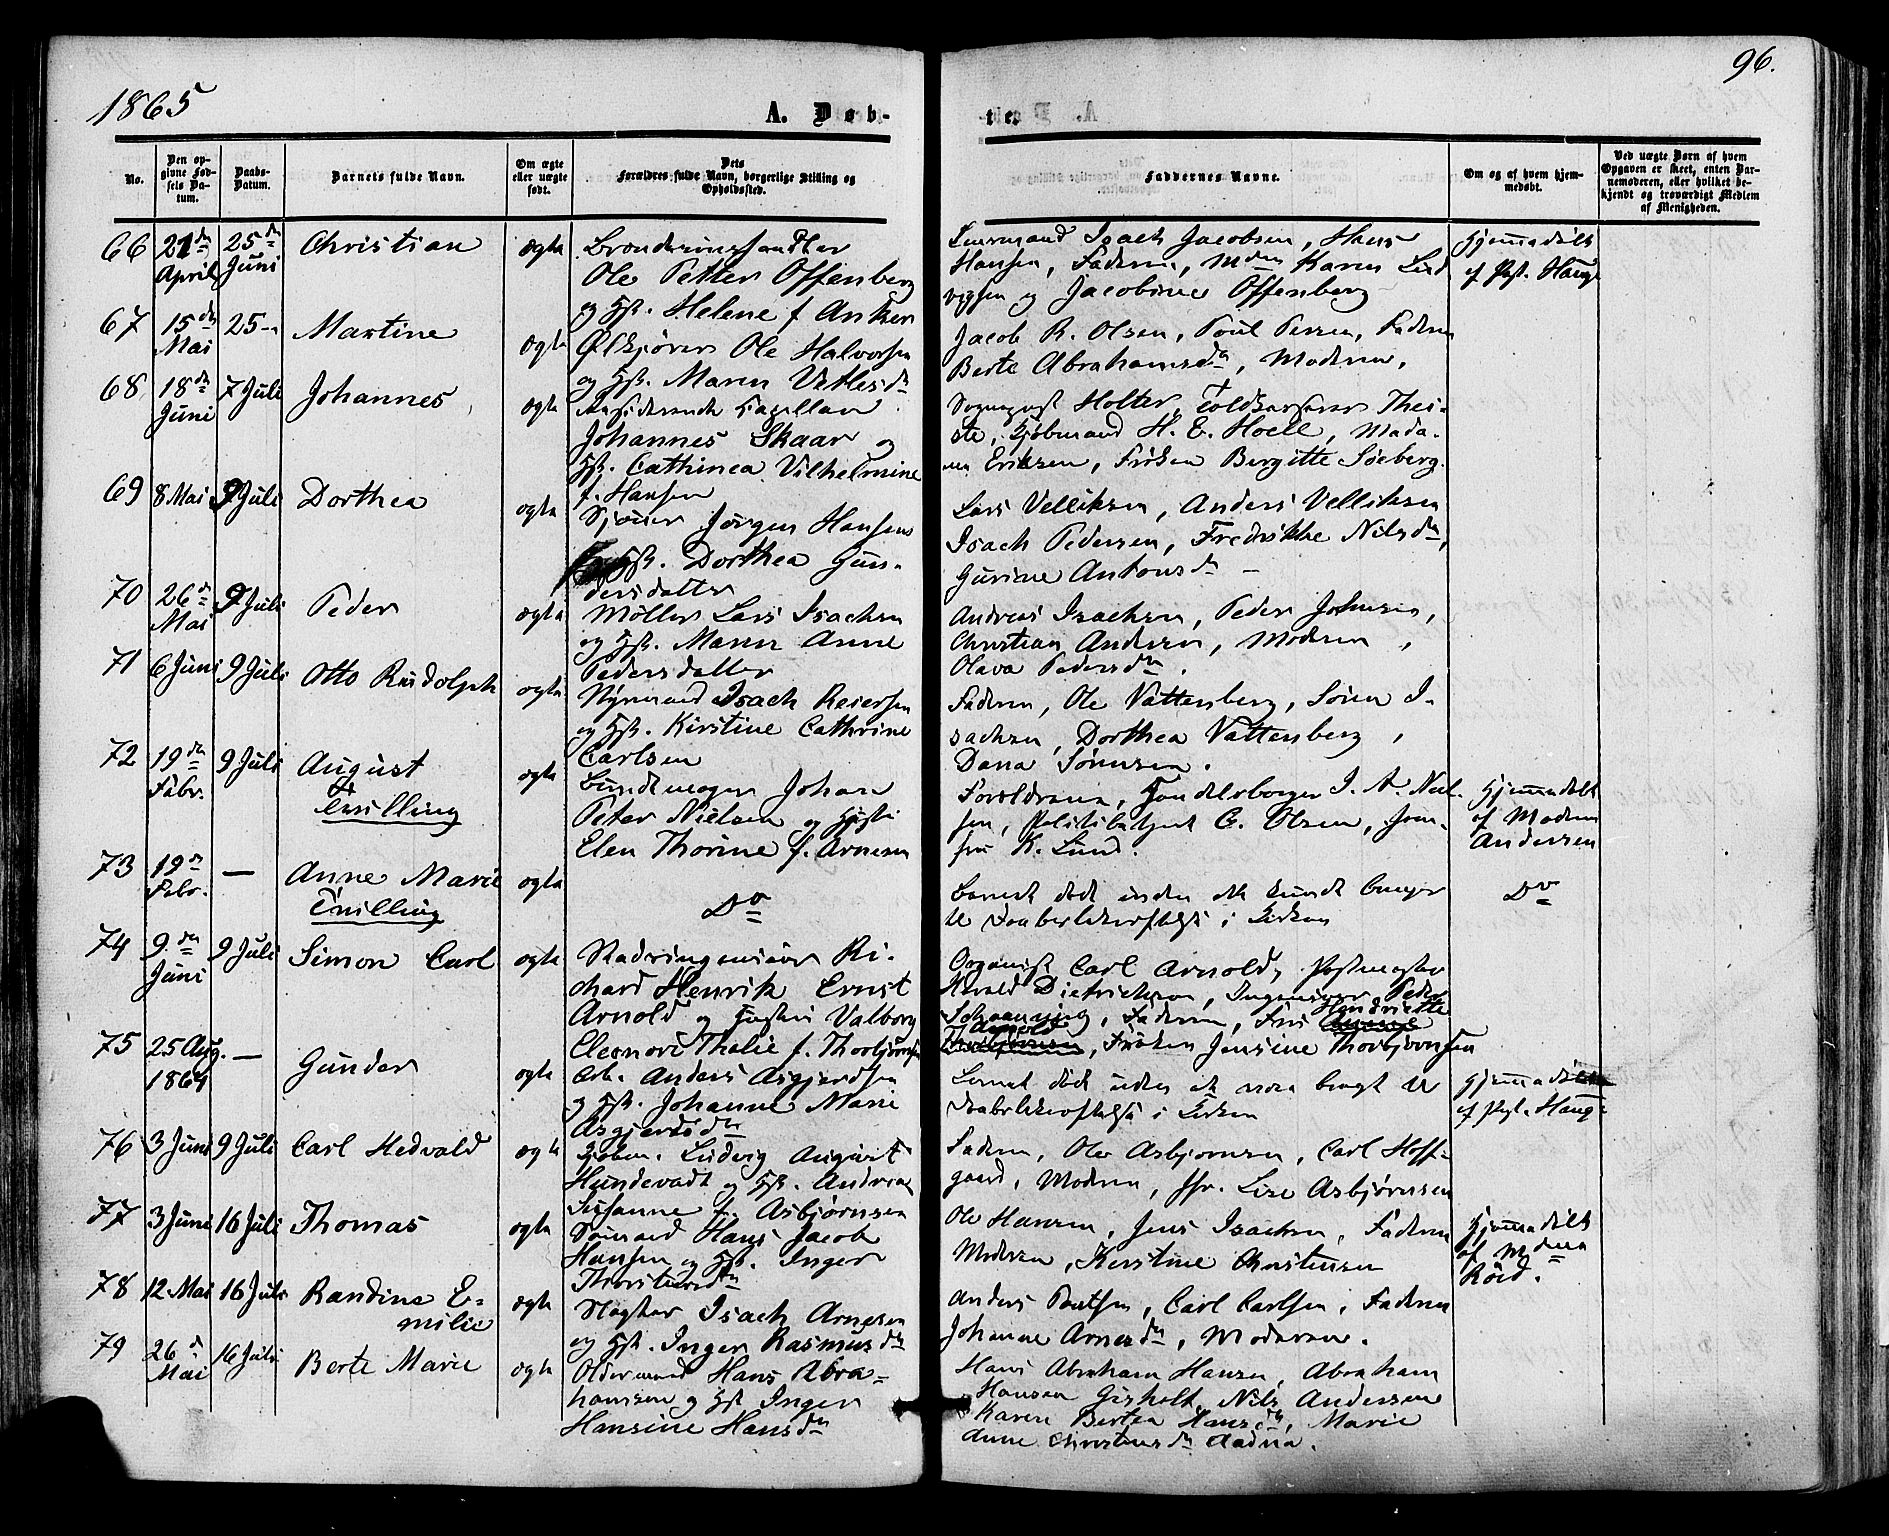 1865
96.
A. Døb-
te.
No.
Den op-
givne Fød-
sels Da-
tum.
Daabs-
Datum.
Barnets fulde Navn.
Om ægte
eller uægte
født.
Dets
Forældres fulde Navn, borgerlige Stilling og
Opholdssted.
Faddernes Navne.
Om og af hvem hjem-
medøbt.
Ved uægte Børn af hvem
Opgaven er skeet, enten Bar-
nemoderen, eller hvilket be-
kjendt og troværdigt Medlem
af Menigheden.
66
21 de
April
25 de
Juni
Christian
ægte
Ole Petter Offenberg
og Hst. Helene f. Anker
Isach Jacobsen, Hans
Hansen, Faderen, Mdm Karen Lud
vigsen og Jacobine Offenberg
Hjemmedøbt
af Pgst. Haug
67
15 de
Mai
25
Martine
ægte
Ole Halvorsen
og Hst. Maren Vetlesd
Jacob R. Olsen, Poul Persen, Faderen
Berte Abrahamsd, Moderen,
68
18 de
Juni
7 Juli
Johannes
ægte
Residerende Kapellan
Johannes Skaar og
Hst. Cathinca Vilhelmine
f. Hansen
Sognepgst Holter, Toldkasserer Thei-
ste, Kjøbmand H. E. Hoell, Mada-
me Eriksen, Frøken Bergitte Søeberg
69
8 Mai
9 Juli
Dorthea
ægte
Jørgen Hansen
og Hst. Dorthea Gun-
dersdatter
Lars Velliksen, Anders Velliksen
Isach Pedersen, Fredrikke Nilsd,
Gurine Antonsd
70
26 d
Mai
9 Juli
Peder
ægte
Møller Lars Isachsen
og Hst. Maren Anne
Pedersdatter
Andreas Isachsen, Peder Johnsen,
Christian Andersen, Moderen,
Olava Pedersd.
71
6 Juni
9 Juli
Otto Rudolph
ægte
Isach Reiersen
og Hst. Kirstine Cathrine
Carlsen
Faderen, Ole Vattenberg, Søren I-
sachsen, Dorthea Vattenberg,
Dana Sørensen.
72
19 de
Febr.
9 Juli
August
Tvilling
ægte
Bundtmager Johan
Peter Nielsen og Hustru
Elen Thorine f. Arnesen
Forældrene, Handelsborger J. A. Niel-
sen, Politibetjent C. Olsen, Jom-
fru K. Lund.
Hjemmedøbt
af Madam
Andersen
73
19 de
Febr.
—
Anne Marie
Tvilling
ægte
Do
Barnet død inden det kunde bringes
til Daabsbekræftelse i Kirken
Do
74
9 de
Juni
9 Juli
Simon Carl
ægte
Stadsingeniør Ri-
chard Henrik Ernst
Arnold og Hustru Valborg
Eleonore Thalie f. Thorbjørnsen
Organist Carl Arnold, Postmester
Harald Dietrichson, Ingeniør Peder
Schaanning, Faderen, Frk Henriette
Arnold, Frøken Jensine Thorbjørnsen
75
25 Aug.
1864
—
Gunder
ægte
Arb. Anders Asgjerdsen
og Hst. Johanne Marie
Asgjersd
Barnet død uden at være bragt til
Daabsbekræftelse i Kirken
Hjemmedøbt
af Pgst. Haug
76
3 Juni
9 Juli
Carl Hedvald
ægte
Kjøbm. Ludvig August
Hundevadt og Hst. Andrea
Susanne f. Asbjørnsen
Faderen, Ole Asbjørnsen, Carl Hoff-
gaard, Moderen, Jfr. Lise Asbjørnsen
77
3 Juni
16 Juli
Thomas
ægte
Sømand Hans Jacob
Hansen og Hst. Inger
Thorstensd
Ole Hansen, Jens Isachsen, Faderen
Moderen, Kirstine Christensen
Hjemmedøbt
af Mdm
Röed.
78
12 Mai
16 Juli
Randine E-
milie
ægte
Slagter Isach Arnesen
og Hst. Inger Rasmusd
Anders Bentsen, Carl Carlsen, Faderen
Johanne Arnesd, Moderen.
79
26 d
Mai
16 Juli
Berte Marie
ægte
Oldermand Hans Abra-
hamsen og Hst Inger
Hansine Hansd
Hans Abraham Hansen, Abraham
Hansen Gisholt, Nils Andersen
Karen Bertea Hansd, Marie
Anne Christensd